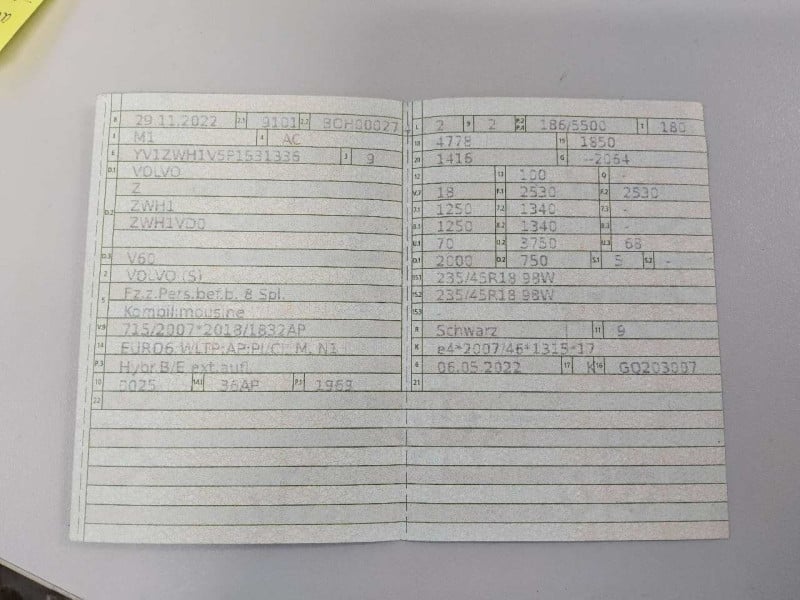 B 29.11.2022 2.1 9101 2.2 BOH00027
J M1 4 AC
E YV1ZWH1V5P1531336 3 9
D.1 VOLVO
Z
D.2 ZWH1
ZWH1VD0
D.3 V60
2 VOLVO (S)
5 Fz.z.Pers.bef.b. 8 Spl.
Kombilimousine
V.9 715/2007*2018/1832AP
14 EURO6 WLTP;AP;PI/CI; M, N1
P.3 Hybr.B/E ext.aufl.
10 0025 14.1 36AP P.1 1969
22
L 2 9 2 P.2 P.4 186/5500 T 180
18 4778 19 1850
20 1416 G --2064
12 - 13 100 Q -
V.7 18 F.1 2530 F.2 2530
7.1 1250 7.2 1340 7.3 -
8.1 1250 8.2 1340 8.3 -
U.1 70 U.2 3750 U.3 68
O.1 2000 O.2 750 S.1 5 S.2 -
15.1 235/45R18 98W
15.2 235/45R18 98W
15.3
R Schwarz 11 9
K e4*2007/46*1315*17
6 06.05.2022 17 K 16 GO203007
21